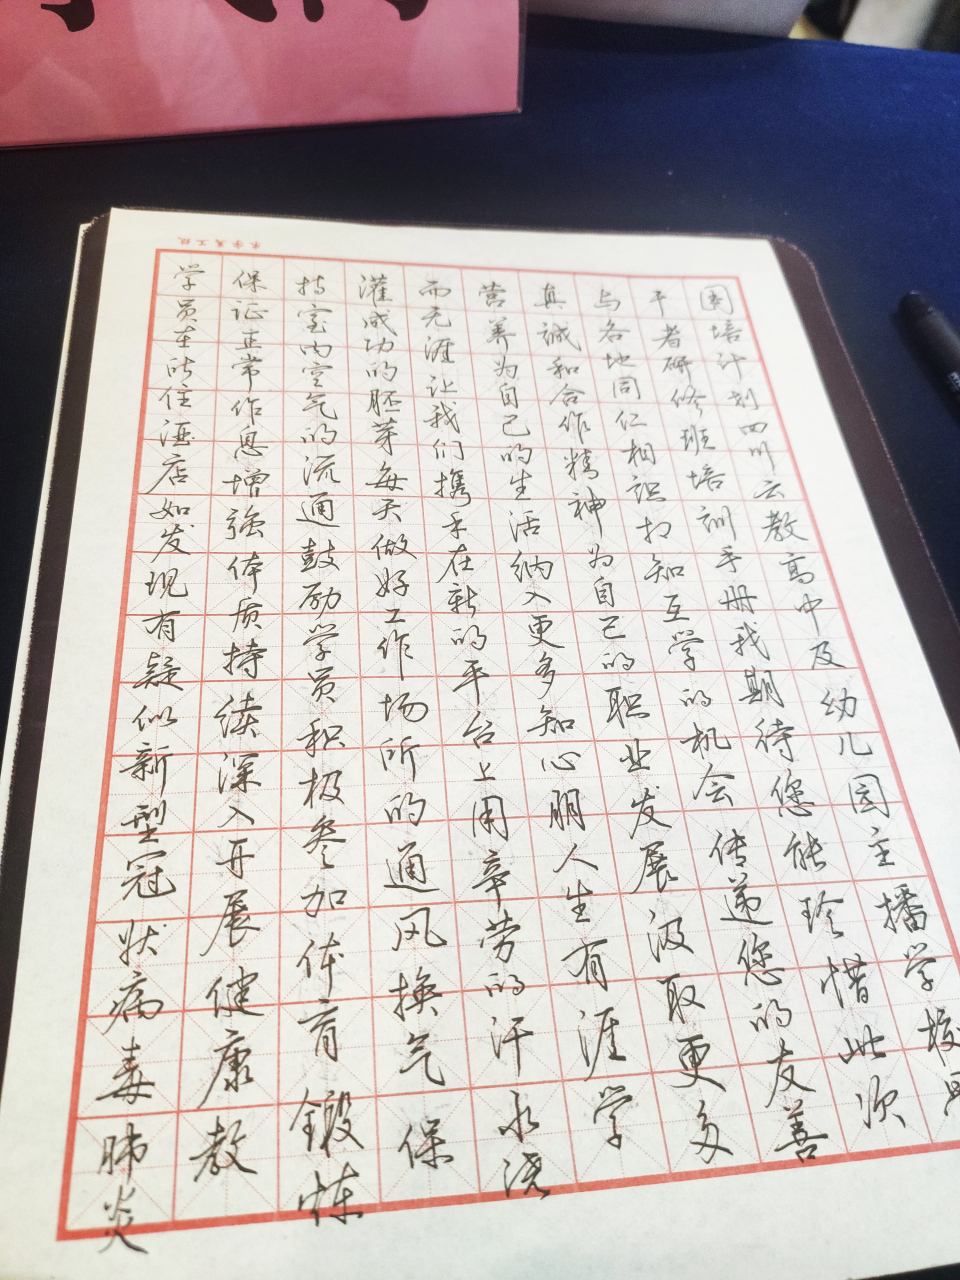 国培计划四川云教高中及幼儿园主播学校骨
干者研修班培训手册我期待您能珍惜此次
与各地同仁相识相知互学的机会传递您的友善
真诚和合作精神为自己的职业发展汲取更多
营养为自己的生活纳入更多知心朋人生有涯学
而无涯让我们携手在新的平台上用辛劳的汗水浇
灌成功的胚芽每天做好工作场所的通风换气保
持室内空气的流通鼓励学员积极参加体育锻炼
保证正常作息增强体质持续深入开展健康教
学员在所住酒店如发现有疑似新型冠状病毒肺炎